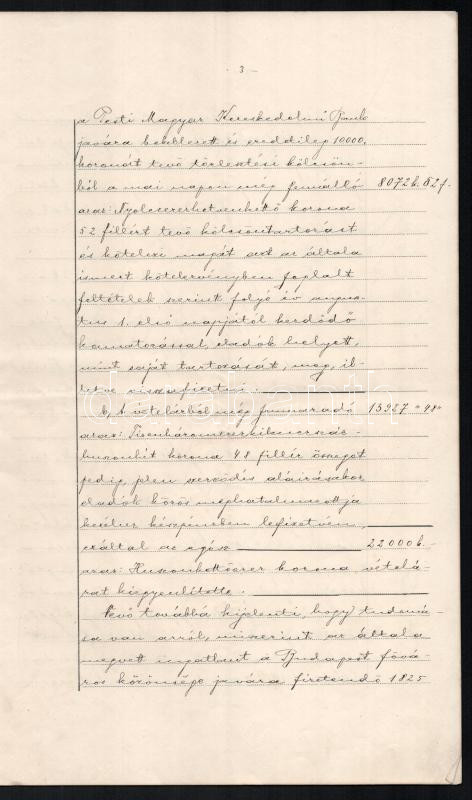 - 3 -
a Pesti Magyar Kereskedelmi Bank
javára bekebelezett és eredetileg 10000,
koronát tevő törlesztési kölcsön-
ből a mai napon még fennálló 8072 k. 52 f.
azaz: Nyolczezerhetvenkettő korona
52 fillért tevő kölcsöntartozást
és kötelezi magát ezt az általa
ismert kötelezvényben foglalt
feltételek szerint folyó év augus-
tus 1. első napjától kezdődő
kamatozással, eladók helyett,
mint saját tartozását, meg, il-
letve visszafizetni.
b, A vételárból még fennmaradó 13927 " 48 "
azaz: Tizenháromezerkilenczszáz-
huszonhét korona 48 fillér összeget
pedig, jelen szerződés aláírásakor
eladók közös meghatalmazottja
kezéhez készpénzben lefizetvén,
ezáltal az egész 22000 k. -
azaz: Huszonkettőezer korona vételá-
rat kiegyenlítette.
Vevő továbbá kijelenti, hogy tudomá-
sa van arról, miszerint az általa
megvett ingatlant a Budapest fővá-
ros közönsége javára fizetendő 1825
darabanth